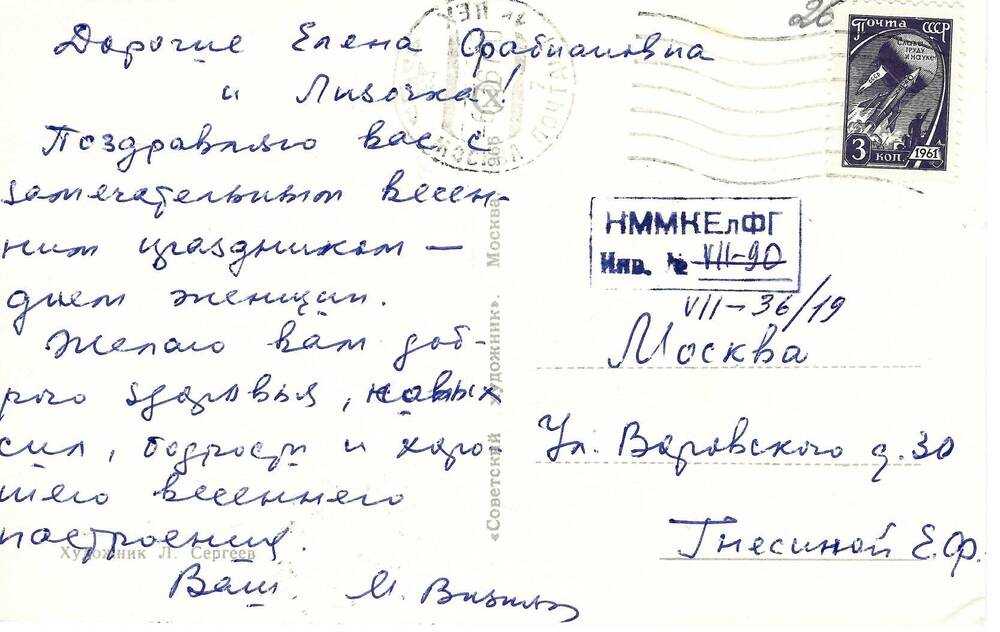 Дорогие Елена Фабиановна
и Лизочка!
Поздравляю вас с
замечательным весен-
ним праздником —
днем женщин.
Желаю вам доб-
рого здоровья, новых
сил, бодрости и хоро
шего весеннего
настроения.
Ваш М.
Художник Л. Сергеев
«Советский художник». Москва. 1966
МОСКВА ПОЧТАМТ
26
Почта СССР
СЛАВА
ТРУДУ
И НАУКЕ!
СССР
3 коп. 1961
НММКЕлФГ
Инв. № VII-90
VII-36/19
Москва
Ул. Воровского д. 30
Гнесиной Е.Ф.